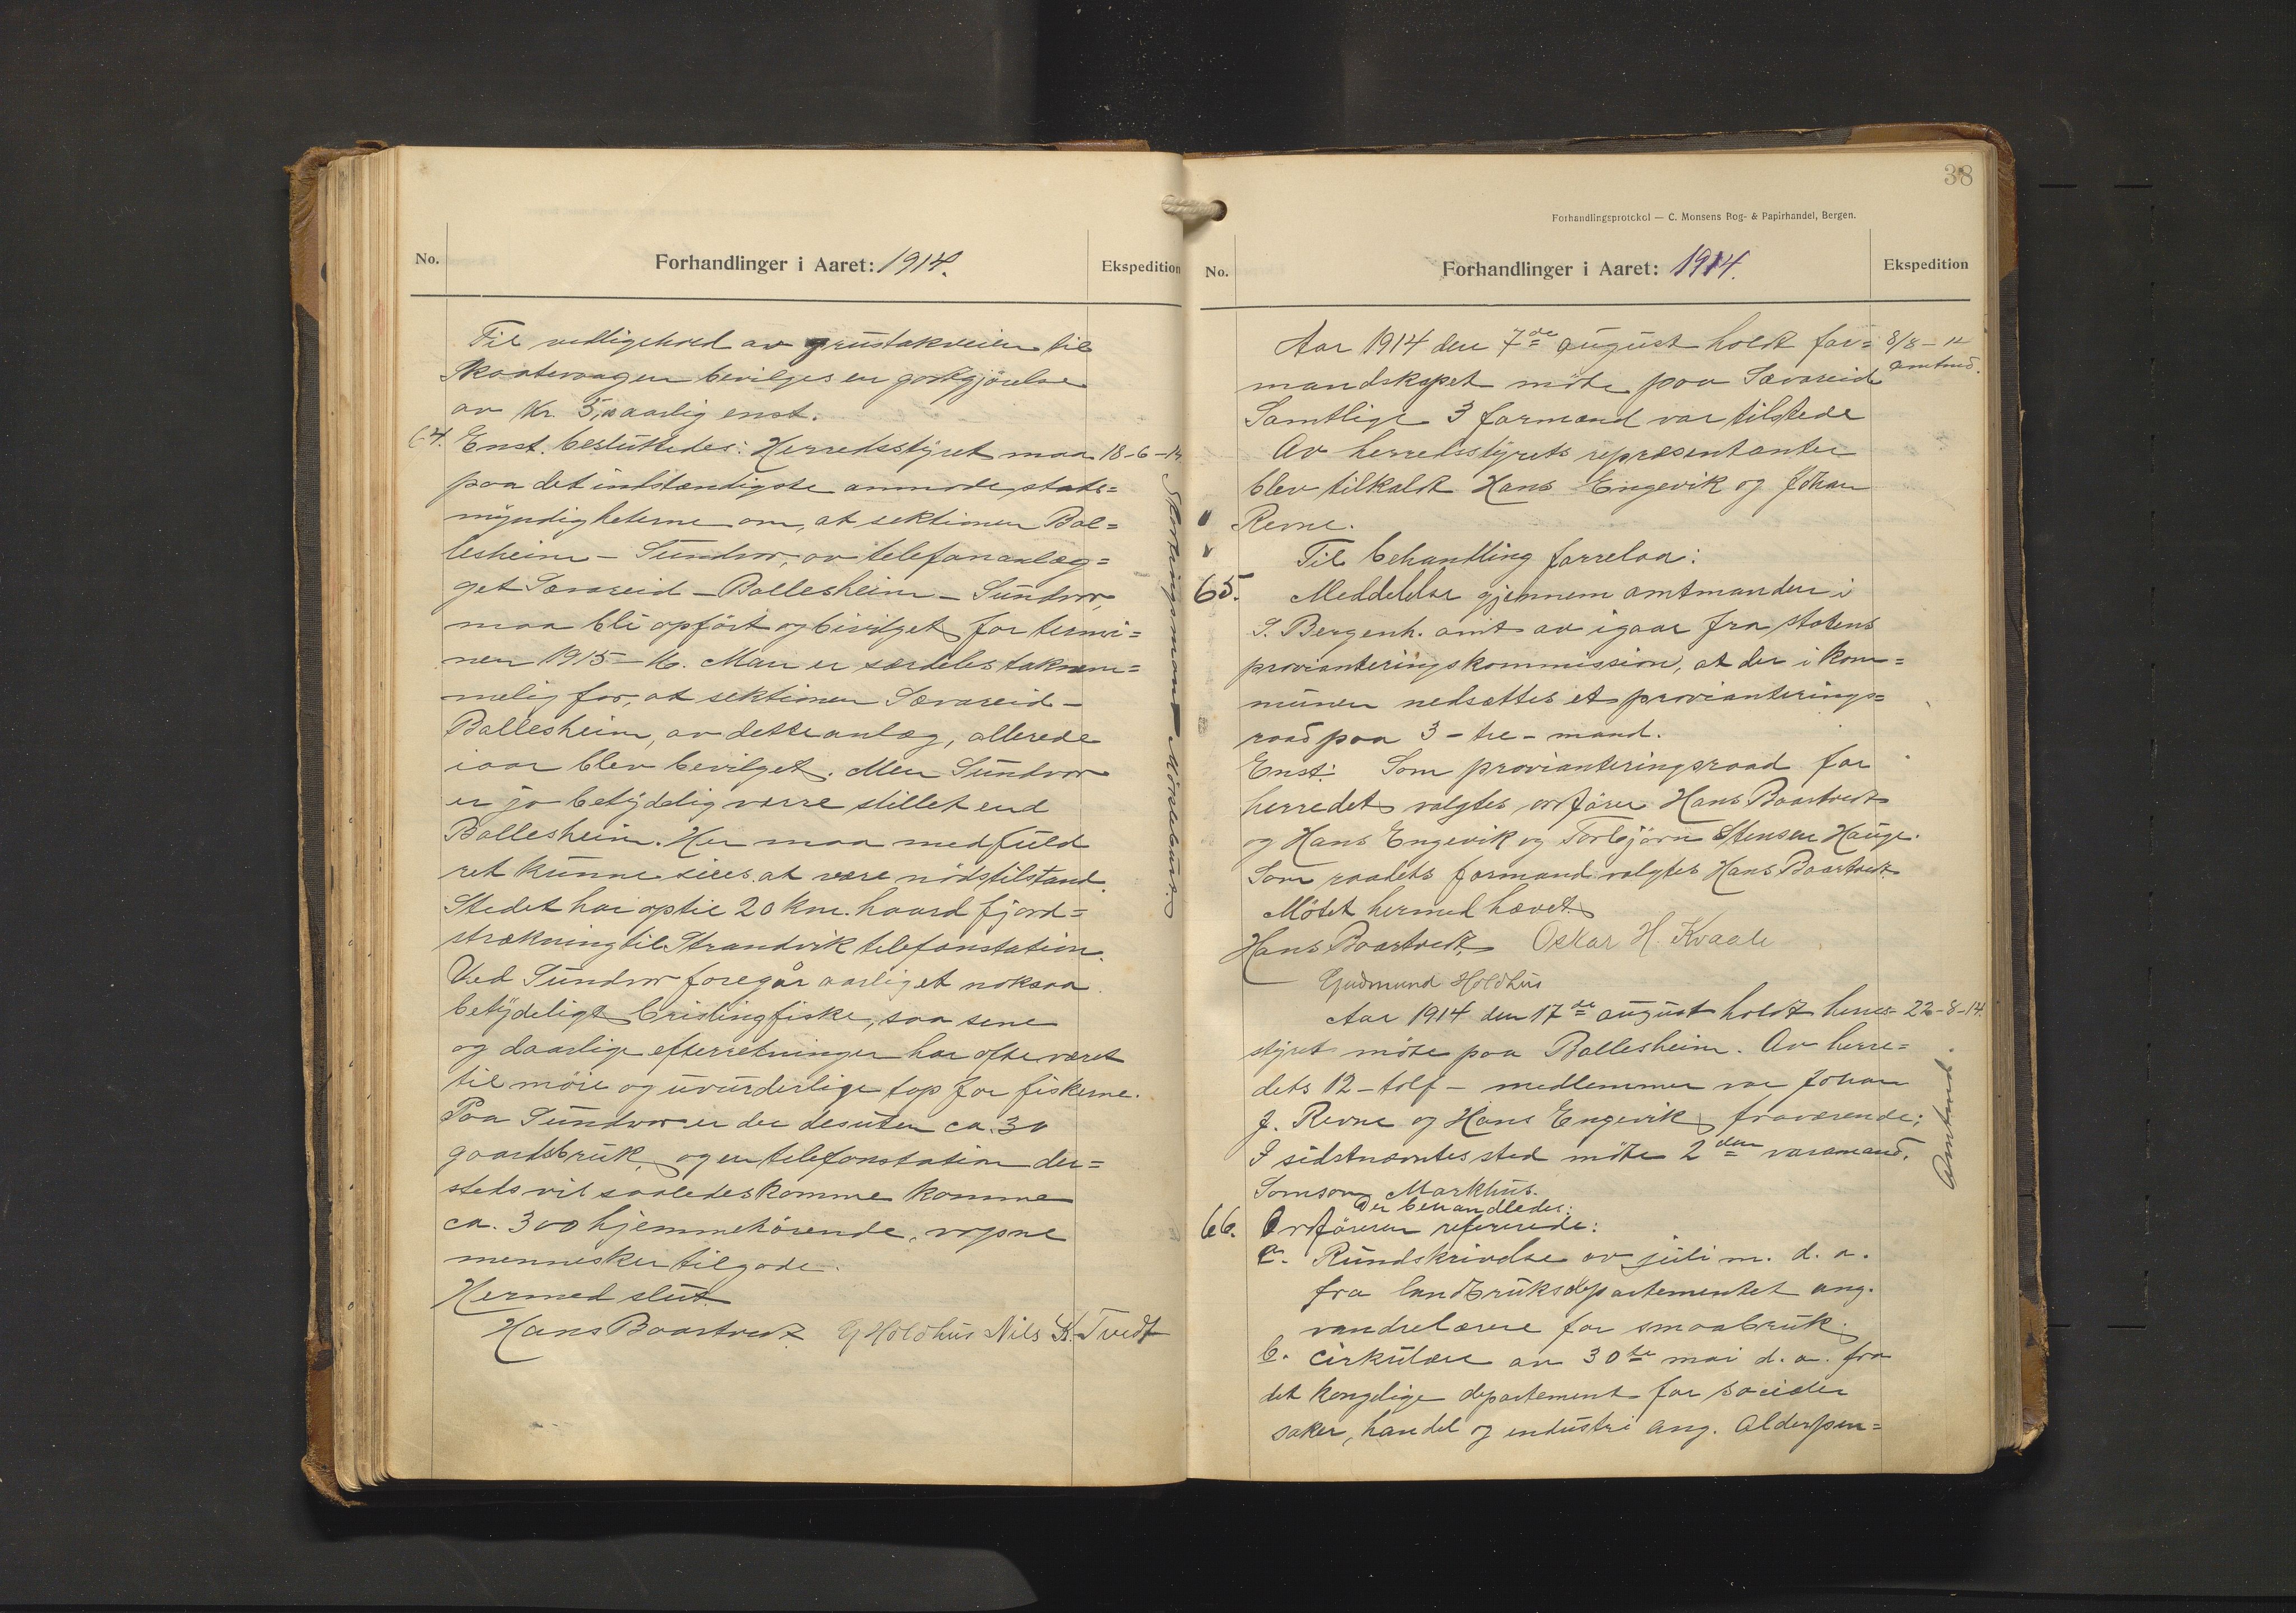 No.
Forhandlinger i Aaret: 1914.
Ekspedition
Til vedligehold av grustakveien til
Skaatevaagen bevilges en godtgjörelse
av Kr. 5,00 aarlig enst.
64. Enst. besluttedes: Herredsstyret maa 18-6-14
paa det indstændigste anmode stats=
myndigheterne om, at sektionen Bal=
lesheim - Sundvor, av telefonanlæg=
get Sævareid - Ballesheim - Sundvor,
maa bli opfört og bevilget for termi=
nen 1915-16. Man er særdeles taknem=
melig for, at sektionen Sævareid -
Ballesheim, av dette anlæg, allerede
iaar blev bevilget. Men Sundvor
er jo betydelig værre stillet end
Ballesheim. Her maa med fuld
ret kunne sies at være nödstilstand.
Stedet har optil 20 km. haard fjord=
strækning til Strandvik telefonstation.
Ved Sundvor foregår aarlig et noksaa
betydeligt brislingfiske, saa sene
og daarlige efterretninger har ofte været
til möie og uvurderlige tap for fiskerne.
Paa Sundvor er der desuten ca. 30
gaardsbruk, og en telefonstation der=
steds vil saaledes komme komme
ca. 300 hjemmehörende, voksne
mennesker tilgode.
Hermed slut.
Hans Baartvedt G Holdhus Nils K. Tvedt
Stortingsmand Mörkehus
38
Forhandlingsprotokol — C. Monsens Bog- & Papirhandel, Bergen.
No.
Forhandlinger i Aaret: 1914.
Ekspedition
Aar 1914 den 7de august holdt for= 8/8-14
mandskapet möte paa Sævareid amtmd.
Samtlige 3 formænd var tilstede
Av herredsstyrets repræsentanter
blev tilkaldt Hans Engevik og Johan
Revne.
Til behandling forrelaa:
65. Meddelelse gjennem amtmanden i
S. Bergenh. amt av igaar fra statens
provianteringskommission, at der i kom=
munen nedsættes et provianterings=
raad paa 3 - tre - mand.
Enst: Som provianteringsraad for
herredet valgtes ordförer Hans Baartvedt
og Hans Engevik og Torbjörn Stensen Hauge.
Som raadets formand valgtes Hans Baartvedt
Mötet hermed hævet.
Hans Baartvedt Oskar H. Kvaale
Gudmund Holdhus
Aar 1914 den 17de august holdt herres= 22-8-14.
styret möte paa Ballesheim. Av herre=
dets 12 - tolf - medlemmer var Johan
J. Revne og Hans Engevik fraværende;
I sidstnævntes sted mötte 2den varamand.
Samson Markhus.
Amtmd.
Der behandledes:
66. Ordföreren refererede:
a. Rundskrivelse av juli m. d. a.
fra landbruksdepartementet ang.
vandrelærere for smaabruk.
b. Cirkulære av 30te mai d. a. fra
det kongelige departement for sociale
saker, handel og industri ang. Alderspen=